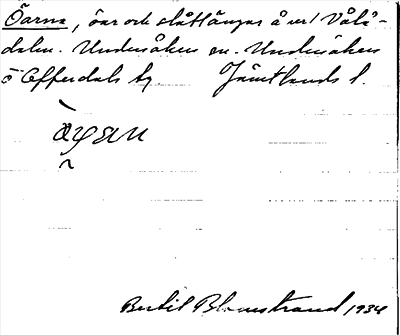 Öarna, öar och slåttängar å ...1 Vålå-
dalen. Undersåkers sn. Undersåkers
o Offerdals tg Jämtlands l.
Bertil Blomstrand 1934